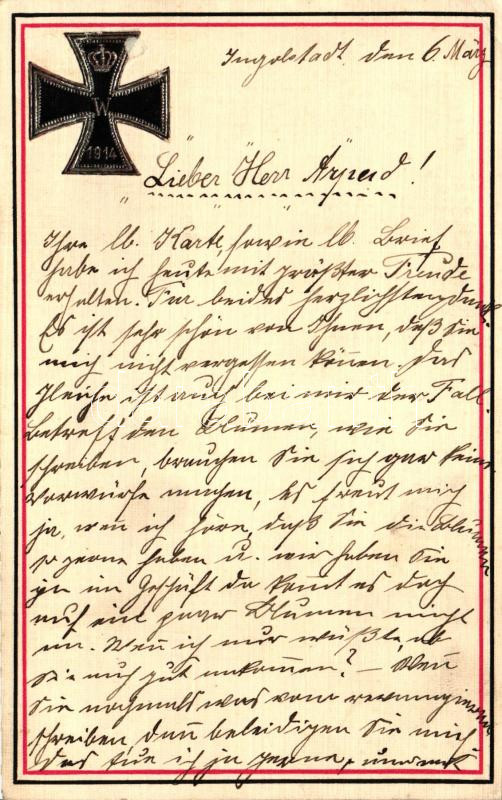 W
1914
Ingolstadt, den 6. März
Lieber Herr Árpád!
Ihre lb. Karte, sowie lb. Brief
habe ich heute mit größter Freude
erhalten. Für beides herzlichsten Dank.
Es ist sehr schön von Ihnen, daß Sie
mich nicht vergessen können. Das
Gleiche ist auch bei mir der Fall.
Betreff den Blumen, wie Sie
schreiben, brauchen Sie sich gar keine
Vorwürfe machen, es freut mich
ja, wen̄ ich höre, daß Sie die Blumen
so gerne haben u. wir haben Sie
ja im Geschäft da kom̄t es doch
auf ein paar Blumen nicht
an. Wen̄ ich nur wüßte, ob
Sie auch gut ankommen? – Wen̄
Sie nochmals was vom revangieren
schreiben, dan̄ beleidigen Sie mich
das tue ich ja gerne, und